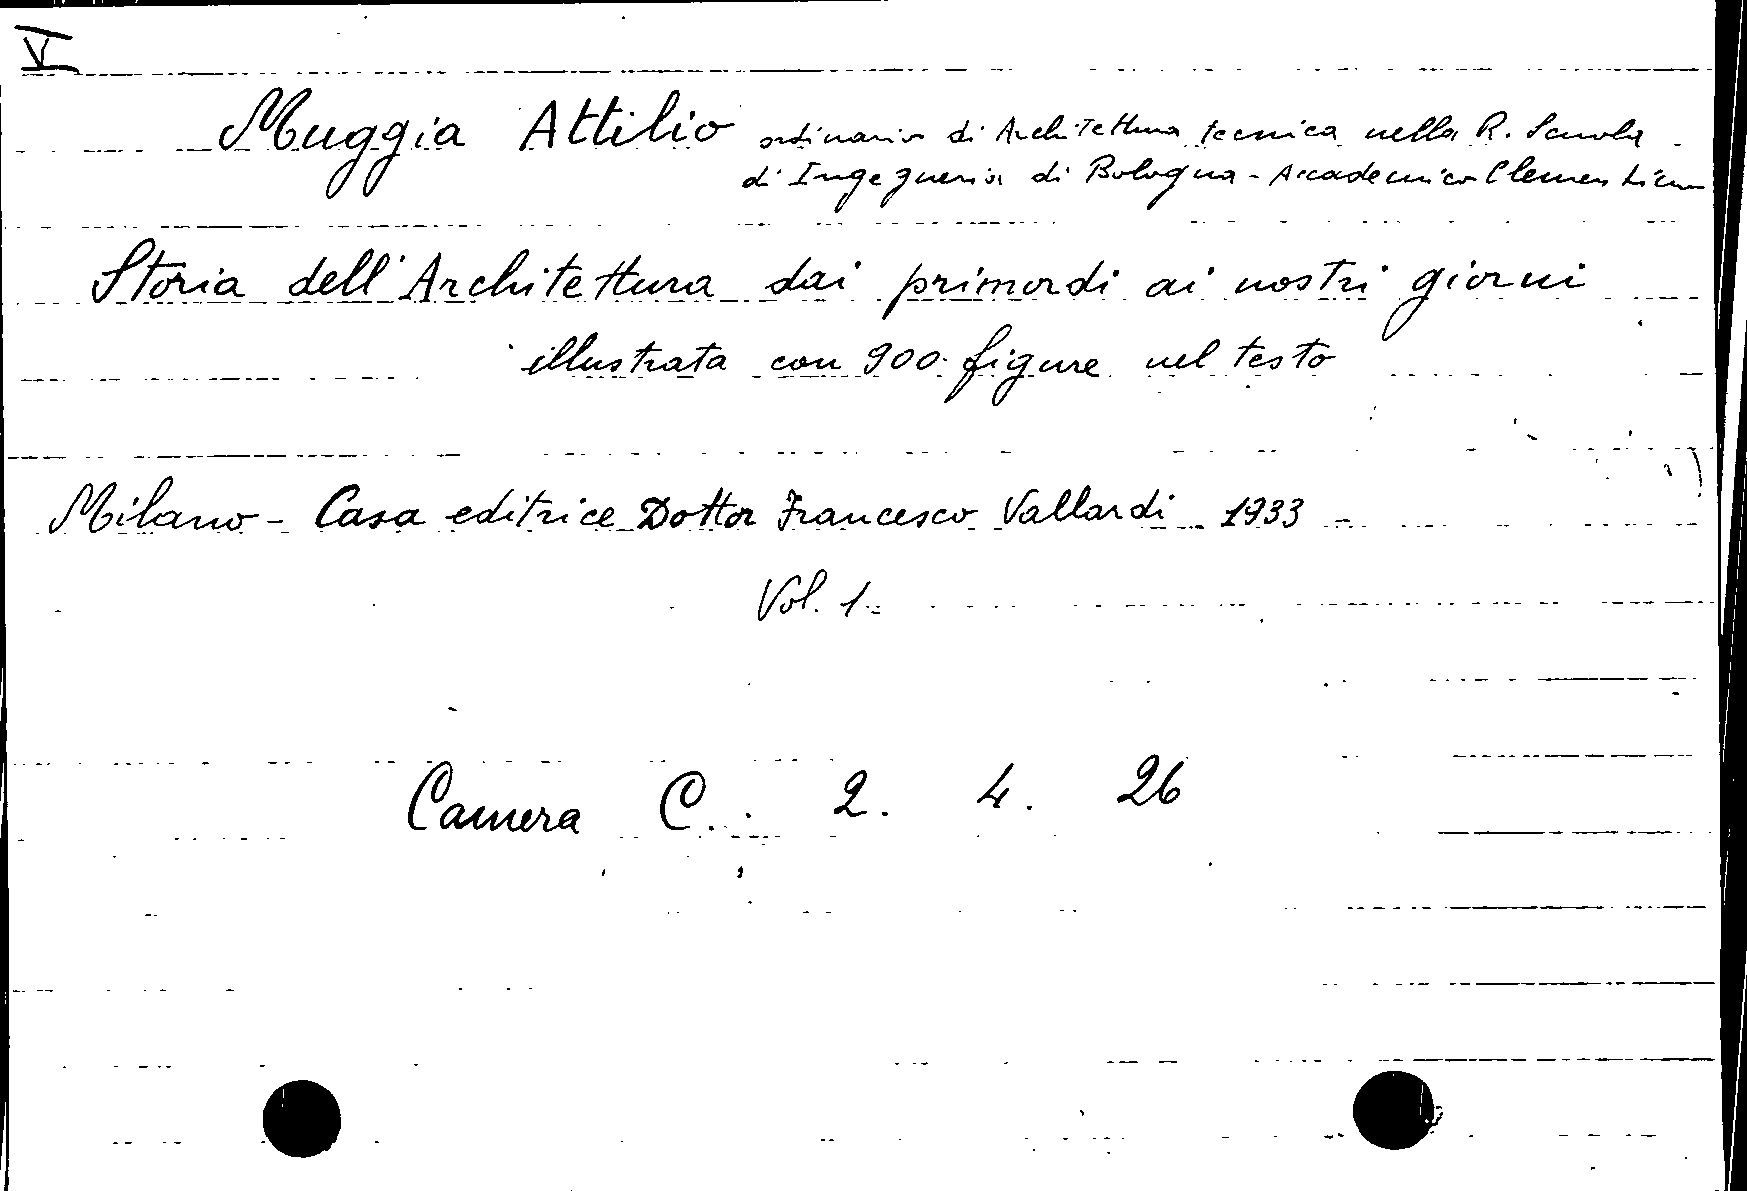 V
Muggia Attilio ordinario di Architettura tecnica nella R. Scuola
di Ingegneria di Bologna - Accademico Clementino
Storia dell'Architettura dai primordi ai nostri giorni
illustrata con 900 figure nel testo
Milano - Casa editrice Dottor Francesco Vallardi 1933
Vol. 1
Camera C. 2. 4. 26